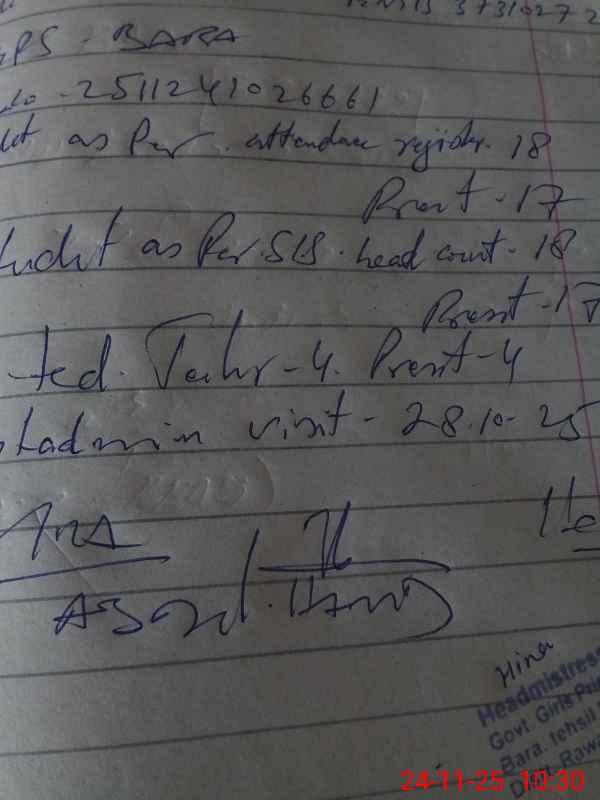 3731027 2
PS - BARA
- 2511241026661
as Per . attendance register. 18
Present - 17
as Per . SIS . head count - 18
Present - 17
ted. Teacher - 4. Present - 4
admin visit - 28.10-25
He
Hina
Headmistress
Govt Girls Pri
Bara. tehsil
Distt. Rawa
24-11-25 10:30